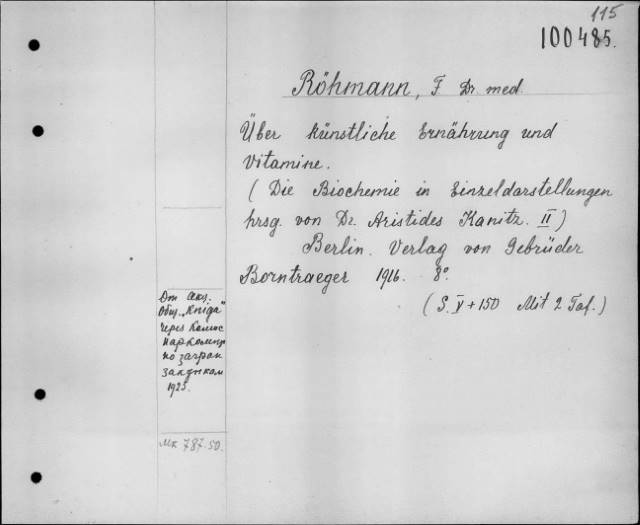 115
100485.
Röhmann, F. Dr. med.
Über künstliche Ernährung und
Vitamine.
(Die Biochemie in Einzeldarstellungen
hrsg. von Dr. Aristides Kanitz. II)
Berlin. Verlag von Gebrüder
Borntraeger 1916. 8°.
(S. V + 150 Mit 2 Taf.)
От Акц.
Общ. „Kniga"
через Комис
наркомпр
по загран
закупкам
1925.
Мк 787.50.